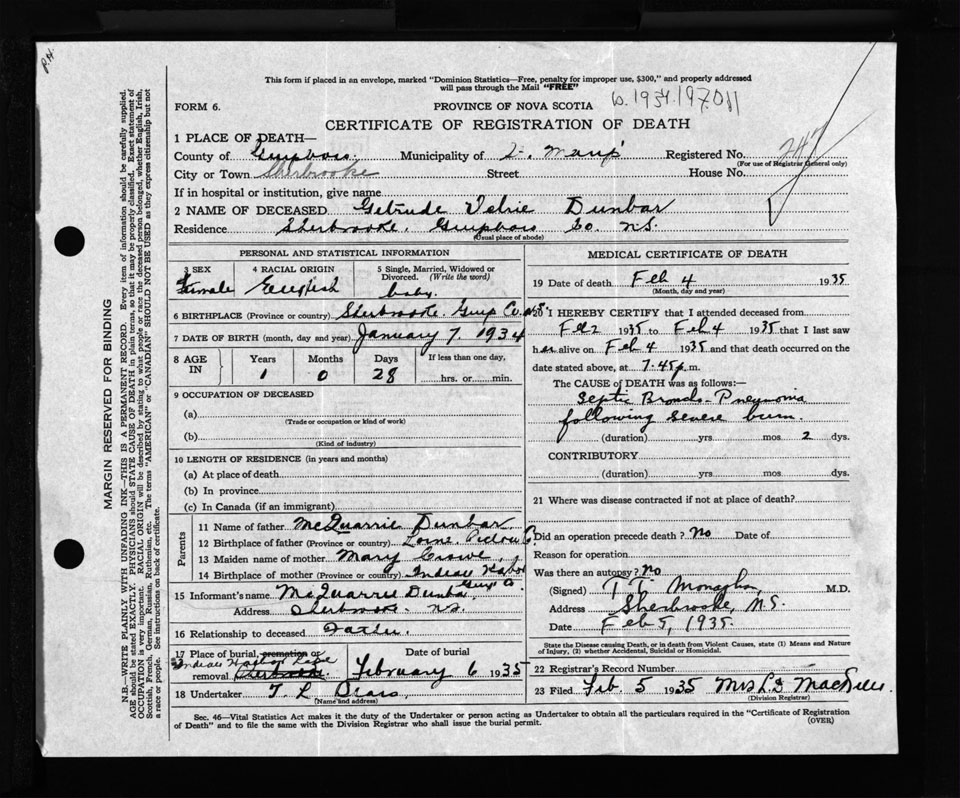 P.H.
This form if placed in an envelope, marked "Dominion Statistics—Free, penalty for improper use, $300," and properly addressed
will pass through the Mail "FREE"
b. 1934.197.011
FORM 6.
PROVINCE OF NOVA SCOTIA
CERTIFICATE OF REGISTRATION OF DEATH
1 PLACE OF DEATH—
County of Municipality of Registered No. 247
(For use of Registrar General only)
City or Town Sherbrooke Street House No.
If in hospital or institution, give name
2 NAME OF DECEASED. Getrude Velrie Dunbar
Residence Sherbrooke. Co. N.S.
(Usual place of abode)
PERSONAL AND STATISTICAL INFORMATION
3 SEX Female
4 RACIAL ORIGIN English
5 Single, Married, Widowed or Divorced. (Write the word) baby.
6 BIRTHPLACE (Province or country) Sherbrooke. Guys Co. N.S.
7 DATE OF BIRTH (month, day and year) January 7, 1934
8 AGE IN Years 1 Months 0 Days 28 If less than one day, hrs. or min.
9 OCCUPATION OF DECEASED
(a)
(Trade or occupation or kind of work)
(b)
(Kind of industry)
10 LENGTH OF RESIDENCE (in years and months)
(a) At place of death
(b) In province
(c) In Canada (if an immigrant)
Parents
11 Name of father McQuarrie Dunbar
12 Birthplace of father (Province or country) Lorne, Pictou Co.
13 Maiden name of mother Mary Crowe
14 Birthplace of mother (Province or country) Indian Harbor
Guys Co.
15 Informant's name McQuarrie Dunbar
Address Sherbrooke. N.S.
16 Relationship to deceased Father.
17 Place of burial, cremation or removal Indian Harbor Lake Sherbrooke.
Date of burial February 6 1935
18 Undertaker T. L.
(Name and address)
MEDICAL CERTIFICATE OF DEATH
19 Date of death Feb 4 1935
(Month, day and year)
20 I HEREBY CERTIFY that I attended deceased from
Feb 2 1935 to Feb 4 1935 that I last saw
her alive on Feb 4 1935 and that death occurred on the
date stated above, at 7.45 p.m.
The CAUSE OF DEATH was as follows:—
Septic Broncho-Pneumonia
following severe burn.
(duration) yrs mos 2 dys.
CONTRIBUTORY
(duration) yrs. mos. dys.
21 Where was disease contracted if not at place of death?
Did an operation precede death? No Date of
Reason for operation
Was there an autopsy? No
(Signed) T. T. Monaghan, M.D.
Address Sherbrooke, N.S.
Date Feb 5, 1935.
State the Disease causing Death, or in death from Violent Causes, state (1) Means and Nature
of Injury, (2) whether Accidental, Suicidal or Homicidal.
22 Registrar's Record Number
23 Filed Feb. 5 1935 Mrs L. F.
(Division Registrar)
Sec. 46—Vital Statistics Act makes it the duty of the Undertaker or person acting as Undertaker to obtain all the particulars required in the "Certificate of Registration
of Death" and to file the same with the Division Registrar who shall issue the burial permit.
(OVER)
MARGIN RESERVED FOR BINDING
N.B.—WRITE PLAINLY WITH UNFADING INK—THIS IS A PERMANENT RECORD. Every item of information should be carefully supplied.
AGE should be stated EXACTLY. PHYSICIANS should STATE CAUSE OF DEATH in plain terms, so that it may be properly classified. Exact statement of
OCCUPATION is very important. RACIAL ORIGIN will be described by stating to what people or race the deceased person belonged, whether English, Irish,
Scottish, French, German, Russian, Ruthenian, etc. The terms "AMERICAN" or "CANADIAN" SHOULD NOT BE USED as they express citizenship but not
a race or people. See instructions on back of certificate.